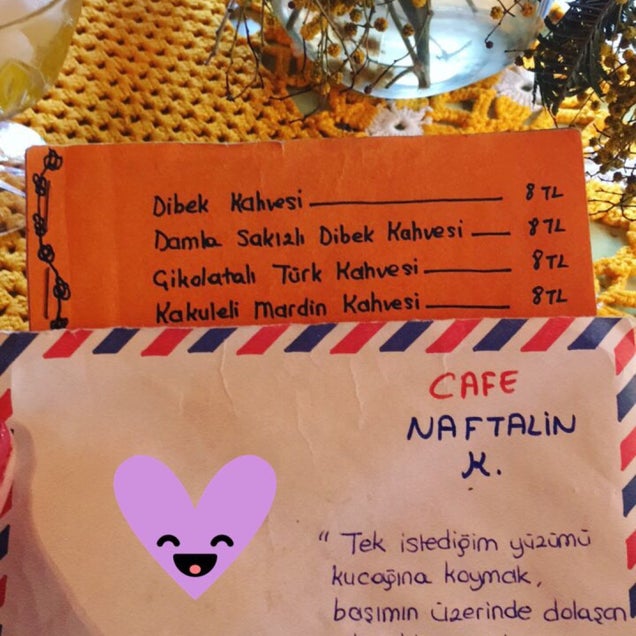 Dibek Kahvesi 8 TL
Damla Sakızlı Dibek Kahvesi 8 TL
Çikolatalı Türk Kahvesi 8 TL
Kakuleli Mardin Kahvesi 8 TL
CAFE
NAFTALİN
K.
" Tek istediğim yüzümü
kucağına koymak,
başımın üzerinde dolaşan